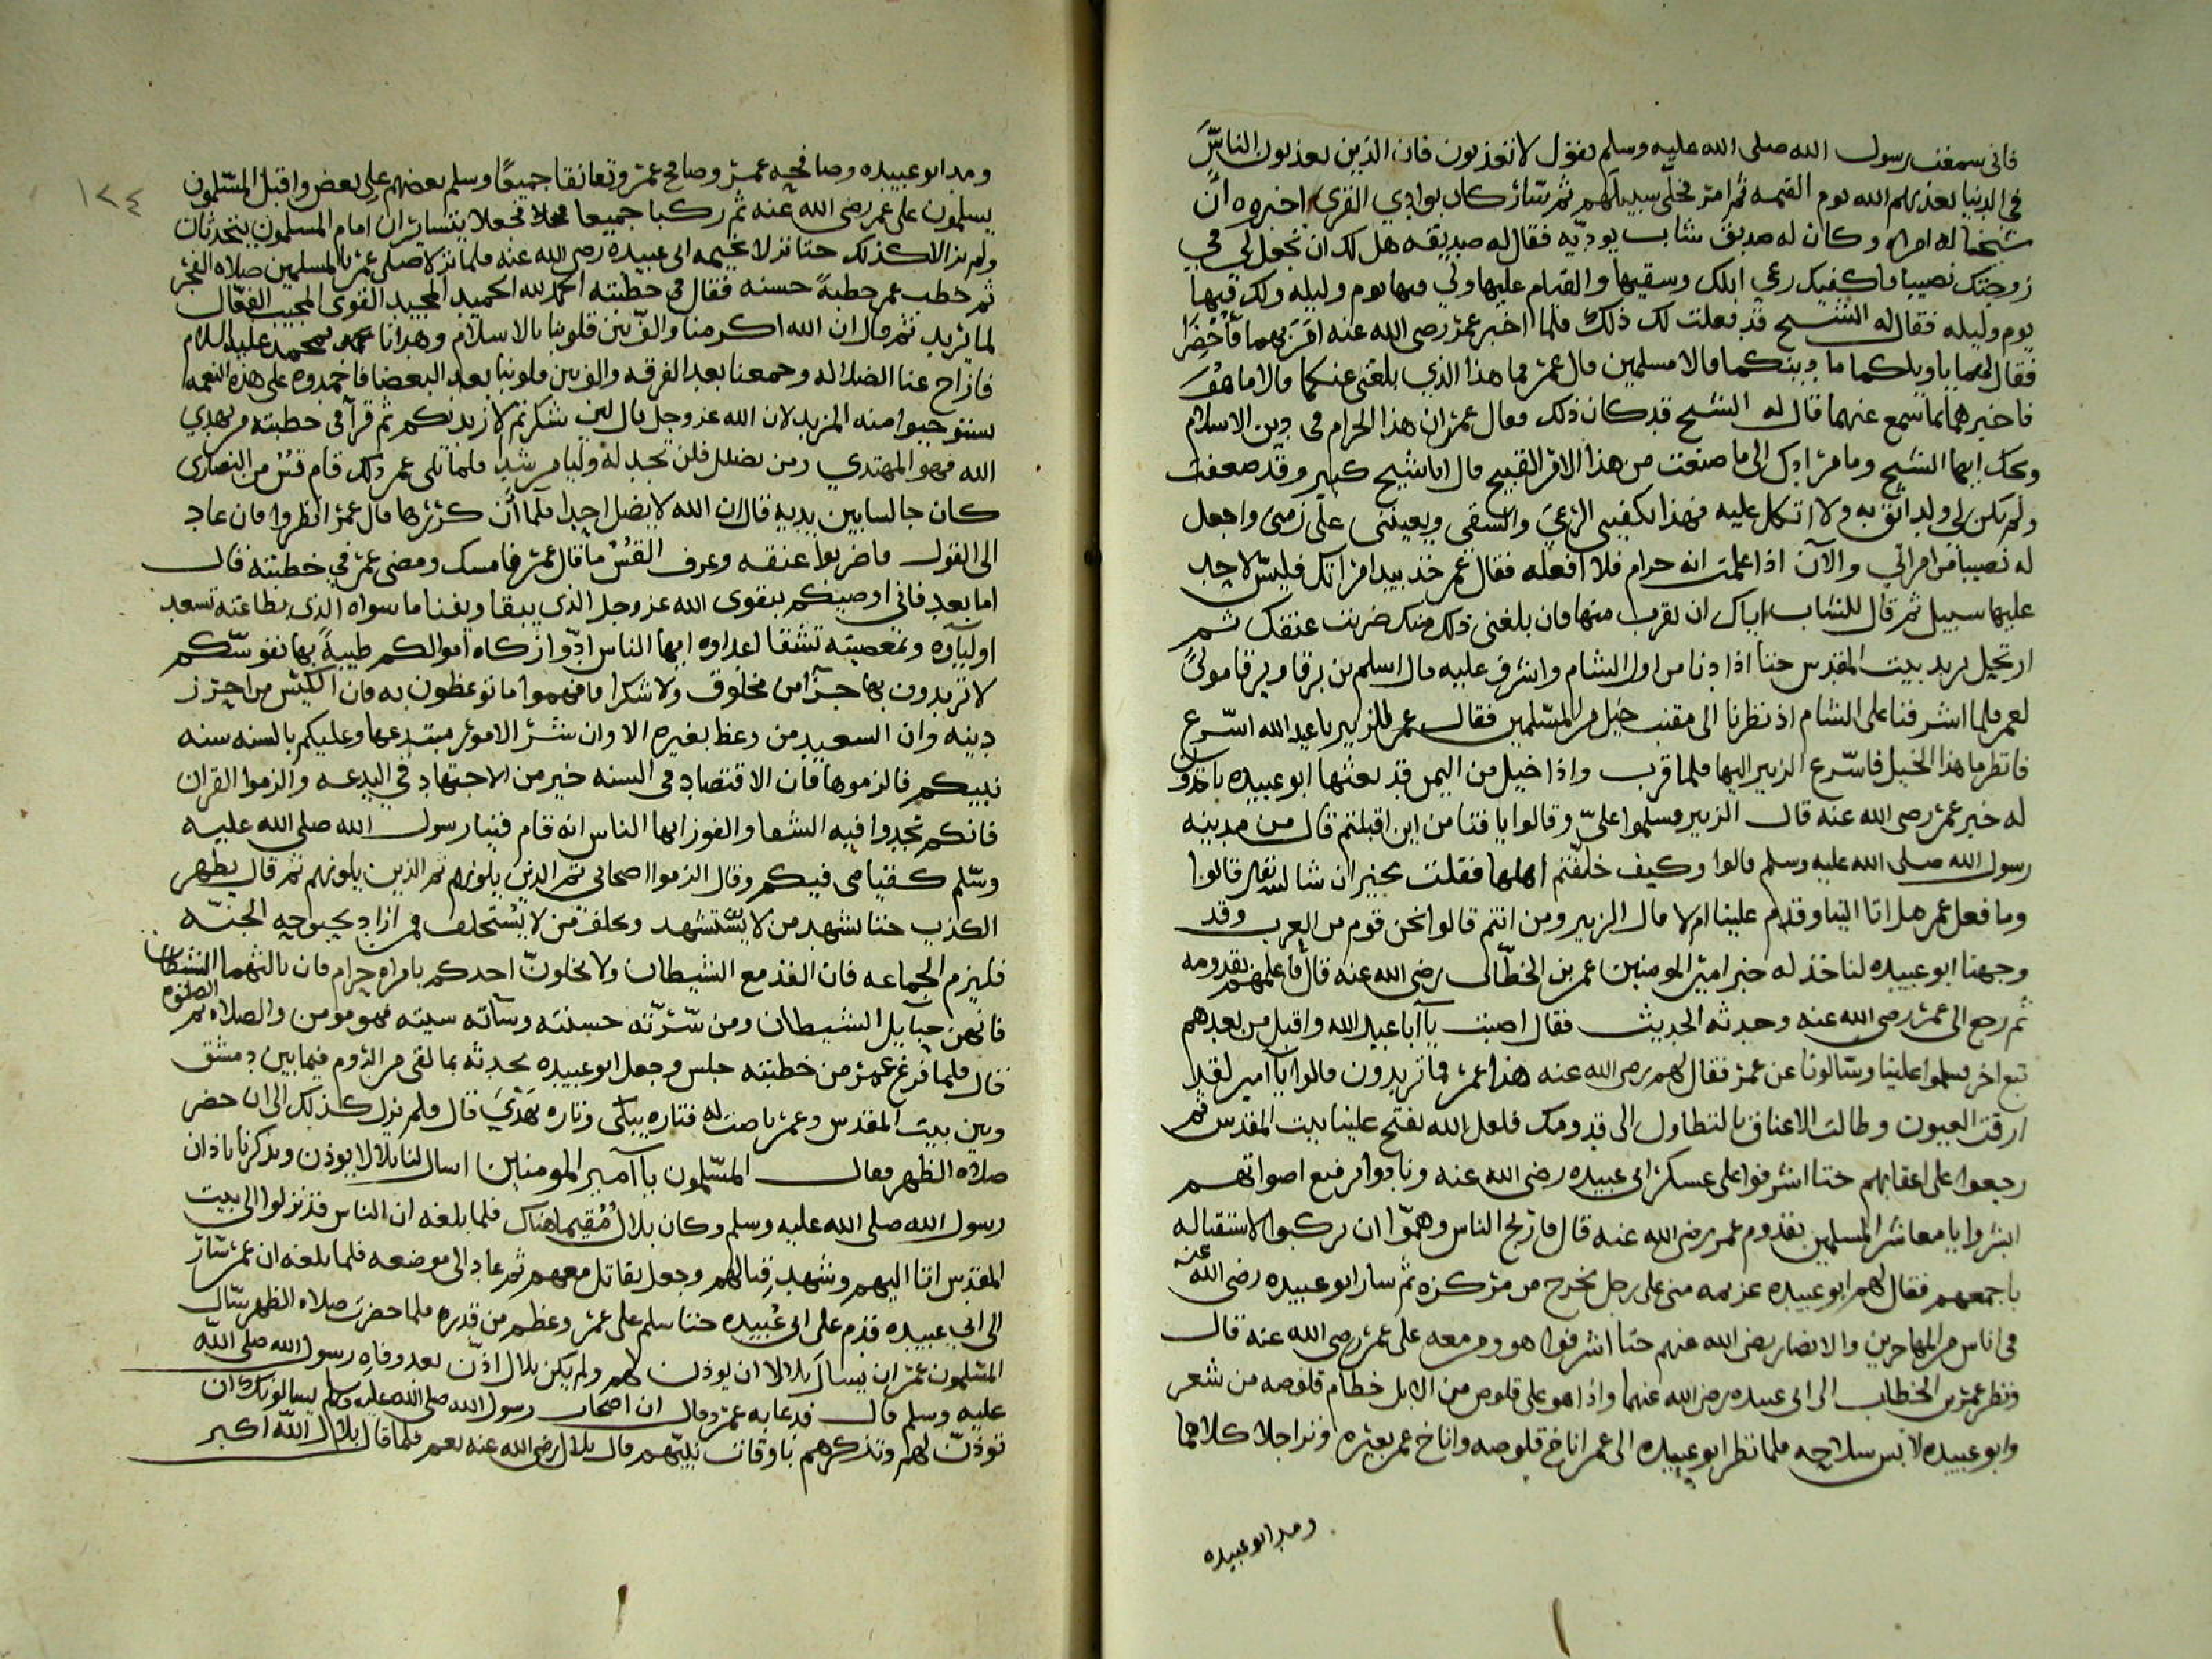 فانى سمعت رسول الله صلى الله عليه وسلم يقول لا تعذبون فان الذين يعذبون الناس
فى الدنيا يعذبهم الله يوم القيمه ثم امر فخلى سبيلهم ثم سار كان بوادي القرى اخبروه ان
شيخا له امراه وكان له صديق شاب يوديه فقال له صديقه هل لك ان تجعل لي في
زوجتك نصيبا واكفيك رعي ابلك وسقيها والقيام عليها ولي فيها يوم وليله ولك فيها
يوم وليله فقال له الشيخ قد فعلت لك ذلك فلما اخبر عمر رضى الله عنه امر بهما فاحضرا
فقال لهما يا ويلكما ما دينكما قالا مسلمين قال عمر فما هذا الذي بلغنى عنكما قالا ما هو
فاخبرهما بما سمع عنهما قال له الشيخ قد كان ذلك فقال عمر ان هذا الحرام فى دين الاسلام
ويحك ايها الشيخ وما مرادك الى ما صنعت من هذا الامر القبيح قال انا شيخ كبير وقد ضعفت
ولم يكن لى ولد اثق به ولا اتكل عليه فهذا يكفينى الرعى والسقى ويعيننى على زمنى واجعل
له نصيبا من امراتي والآن اذا علمت انه حرام فلا افعله فقال عمر خذ بيد امراتك فليس لاحد
عليها سبيل ثم قال للشاب اياك ان تقرب منها فان بلغنى ذلك منك ضربت عنقك ثم
ارتحل يريد بيت المقدس حتا اذا دنا من اول الشام واشرف عليه قال اسلم بن برقا وبرقا مولى
لعمر فلما اشرفنا على الشام اذ نظرنا الى مقنب خيل من المسلمين فقال عمر للزبير يا عبد الله اسرع
فانظر ما هذا الخيل فاسرع الزبير اليها فلما قرب واذا خيل من اليمن قد بعثها ابو عبيده ياخذون
له خبر عمر رضى الله عنه قال الزبير فسلموا علىّ وقالوا يا فتا من اين اقبلتم قال من مدينه
رسول الله صلى الله عليه وسلم قالوا وكيف خلفتم اهلها فقلت بخير ان شا الله تعالى قالوا
وما فعل عمر هل اتا الينا وقدم علينا ام لا قال الزبير ومن انتم قالوا نحن قوم من العرب وقد
وجهنا ابو عبيده لناخذ له خبر امير المومنين عمر بن الخطاب رضى الله عنه قال فاعلمهم بقدومه
ثم رجع الى عمر رضى الله عنه وحدثه الحديث فقال اصبت يا ابا عبد الله واقبل من بعدهم
تبع اخر فسلموا علينا وسالونا عن عمر فقال لهم رضى الله عنه هذا عمر فما تريدون قالوا يا امير لقد
ارقت العيون وطالت الاعناق بالتطاول الى قدومك فلعل الله يفتح علينا بيت المقدس ثم
رجعوا على اعقابهم حتا اشرفوا على عسكر ابى عبيده رضى الله عنه ونادوا برفيع اصواتهم
ابشروا يا معاشر المسلمين بقدوم عمر رضى الله عنه قال فارتج الناس وهموّا ان يركبوا لاستقباله
باجمعهم فقال لهم ابو عبيده عزيمه منى على رجل يخرج من مركزه ثم سار ابو عبيده رضى الله عنه
فى اناس من المهاجرين والانصار رضى الله عنهم حتا اشرفوا هو ومن معه على عمر رضى الله عنه قال
ونظر عمر بن الخطاب الى ابى عبيده رضى الله عنهما واذا هو على قلوص من الابل خطام قلوصه من شعر
وابو عبيده لابس سلاحه فلما نظر ابو عبيده الى عمر اناخ قلوصه واناخ عمر بعيره ونزلا كلاهما
ومد ابو عبيده
١٢٤
ومد ابو عبيده وصافحه عمر وصافح عمر وتعانقا جميعًا وسلم بعضهم على بعض واقبل المسلمون
يسلمون على عمر رضى الله عنه ثم ركبا جميعا فجعلا يتسايران امام المسلمون يتحدثان
ولم يزالا كذلك حتا نزلا بخيمه ابى عبيده رضى الله عنه فلما نزلا صلى عمر بالمسلمين صلاه الفجر
ثم خطب عمر خطبةً حسنه فقال فى خطبته الحمد لله الحميد المجيد القوى المجيب الفعّال
لما يريد ثم قال ان الله اكرمنا والّف بين قلوبنا بالاسلام وهدانا بمحمد عليه السلام
فازاح عنا الضلاله وجمعنا بعد الفرقه والف بين قلوبنا بعد البغضا فاحمدوه على هذه النعمه
ستوجبوا منه المزيد لان الله عز وجل قال لئن شكرتم لازيدنكم ثم قرآ فى خطبته من يهدي
الله فهو المهتدي ومن يضلل فلن تجد له وليا مرشدا فلما تلى عمر ذلك قام قسٌ من النصارى
كان جالسا بين يديه فقال ان الله لا يضل احدا فلما ان كررها قال عمر انظروا فان عاد
الى القول فاضربوا عنقه وعرف القسٌ ما قال عمر فامسك ومضى عمر في خطبته فقال
اما بعد فانى اوصيكم بتقوى الله عز وجل الذى يبقا ويفنا ما سواه الذى بطاعته تسعد
اولياؤه وبمعصيته تشقا اعداوه ايها الناس ادّوا زكاه اموالكم طيبةً بها نفوسكم
لا تريدون بها جزآ من مخلوق ولا شكرا وافهموا ما توعظون به فان الكيس من احرز
دينه وان السعيد من وعظ بغيره الا وان شر الامور مبتدعها وعليكم بالسنه سنه
نبيكم فالزموها فان الاقتصاد فى السنه خير من الاجتهاد في البدعه والزموا القران
فانكم تجدوا فيه الشفا والفوز ايها الناس انه قام فينا رسول الله صلى الله عليه
وسلم كقيامى فيكم وقال الزموا اصحابى ثم الذين يلونهم ثم الذين يلونهم ثم قال يظهر
الكذب حتا يشهد من لا يستشهد ويحلف من لا يستحلف فمن اراد بحبوحه الجنّه
فليزم الجماعه فان الفذ مع الشيطان ولا يخلونّ احدكم بامراه حرام فان ثالثهما الشيطان
فانهن حبآيل الشيطان ومن سّرّته حسنته وسآته سيته فهو مومن والصلاه ثم الصلوه
قال فلما فرغ عمر من خطبته جلس وجعل ابو عبيده يحدثه بما لقى من الروم فيما بين دمشق
وبين بيت المقدس وعمر ناصت له فتاره يبكى وتاره يهدي قال ولم يزل كذلك الى ان حضر
صلاه الظهر فقال المسلمون يآ امير المومنين اسال لنا بلالا يوذن ويذكرنا باذان
رسول الله صلى الله عليه وسلم وكان بلالٌ مُقيما هناك فلما بلغه ان الناس قد نزلوا الى بيت
المقدس اتا اليهم وشهد قتالهم وجعل يقاتل معهم ثم عاد الى موضعه فلما بلغه ان عمر سّار
الى ابي عبيده قدم على ابى عُبيده حتا سلم على عمر وعظم من قدره فلما حضرت صلاه الظهر سّال
المسّلمون عمر ان يسال بلالا ان يوذن لهم ولم يكن بلال اذّن بعد وفاه رسول الله صلى اللّه
عليه وسلم قال فدعا به عمر وقال ان اصحاب رسول الله صلى الله عليه وسلم يسالونك ان
توذنّ لهم وتذكرهم باوقات نبيّهم قال بلال رضى الله عنه نعم فلما قال بلال اللّه اكبر